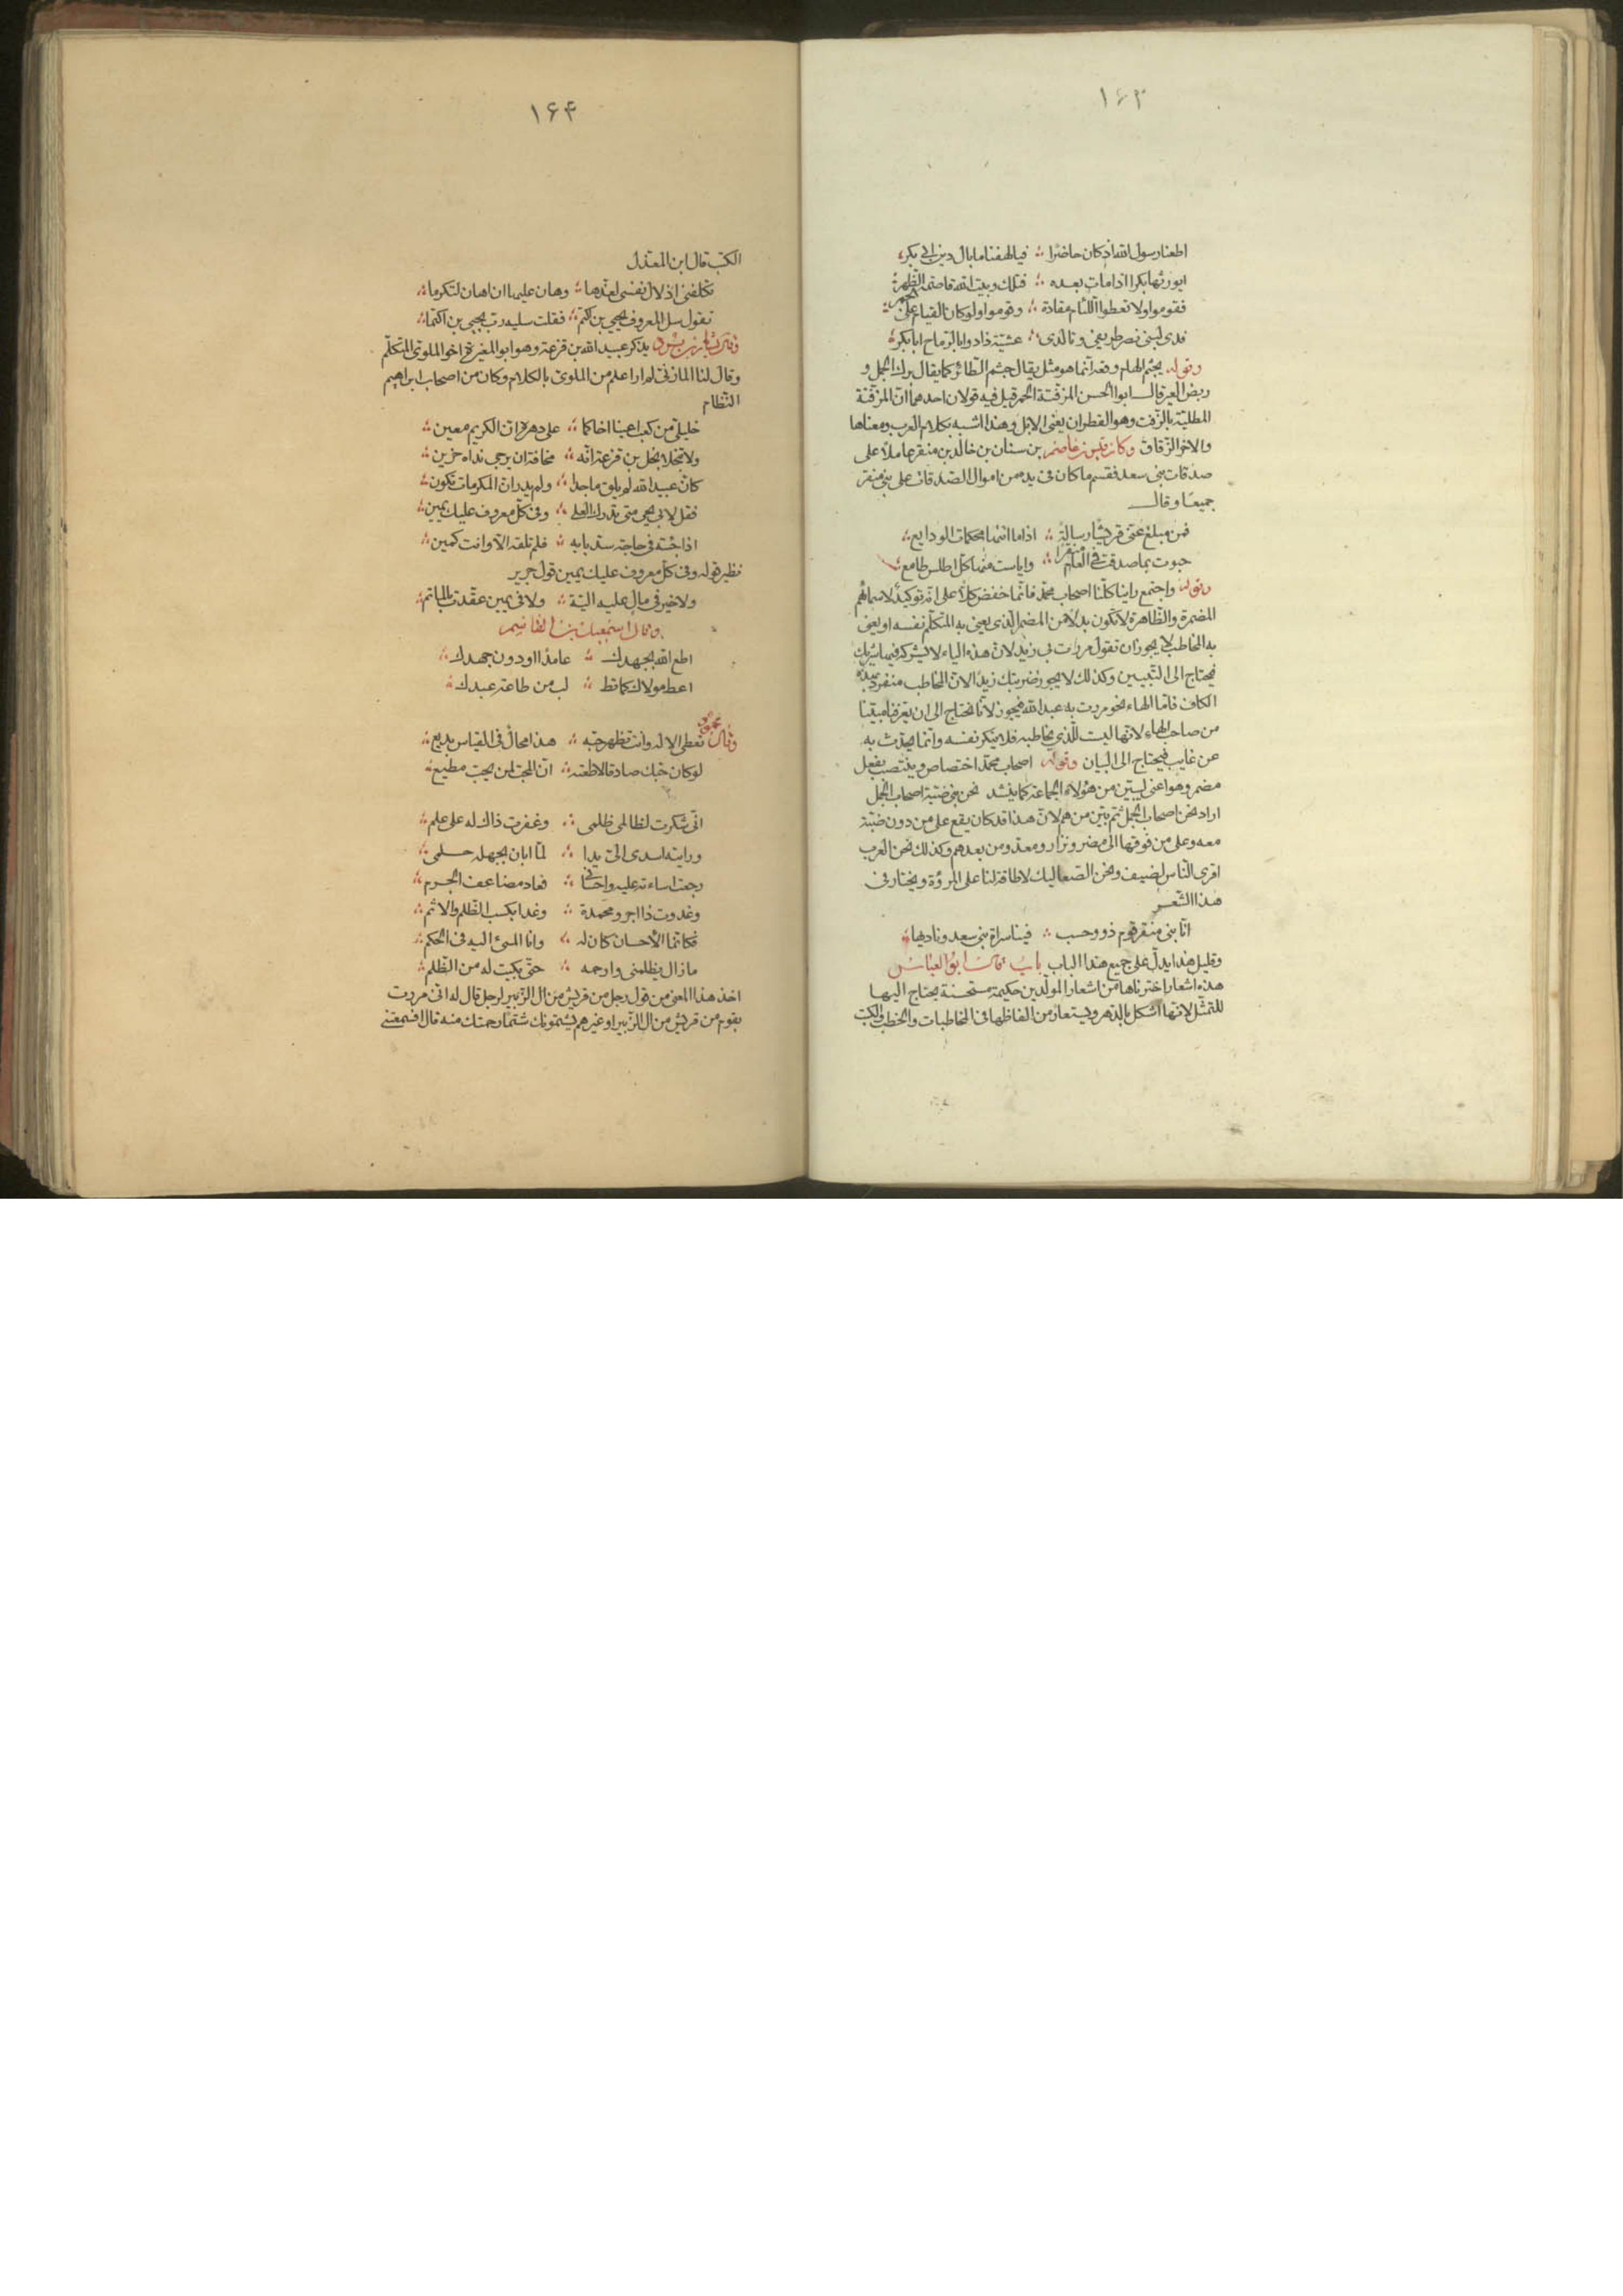 ۱۶۳
اطعنا رسول الله اذ كان حاضرا ؞ فيا لهفنا ما بال دين ابى بكر
ايورثها بكرا اذا مات بعده ؞ فتلك وبيت الله قاصمة الظهر
فقوموا ولا تعطوا اللئام مقادة ؞ وقوموا ولو كان القيام على الجمر
فدى لبنى نصر طريفى وتالدى ؞ عشية ذادوا بالرماح ابا بكر
وقوله يجثم الهام وقعه انما هو مثل يقال جثم الطائر كما يقال برك الجمل و
ربض العير قال ابو الحسن المزفتة الحمر قيل فيه قولان احدهما ان المزفتة
المطلية بالزفت وهو القطران يعنى الابل وهذا اشبه بكلام العرب ومعناها
والاخر الزقاق وكان قيس بن عاصم بن سنان بن خالد بن منقر عاملا على
صدقات بنى سعد فقسم ما كان فى يده من اموال الصدقات على بنى منقر
جميعا وقال
فمن مبلغ عنى قريشا رسالة ؞ اذا ما اتتها محكمات الودايع
حبوت بما صدقت فى العام منقرا ؞ واياست منها كل اطلس طامع
وقوله واجتمع راينا كلنا اصحاب محمد فانما خفض كلا على انه توكيد لاسمائهم
المضمرة والظاهرة لا تكون بدلا من المضمر الذى يعنى به المتكلم نفسه او يعنى
به المخاطب لا يجوز ان تقول مررت بى زيد لان هذه الياء لا يشركه فيها شريك
فيحتاج الى التبيين وكذلك لا يجوز ضربتك زيدا لان المخاطب منفرد بهذه
الكاف فاما الهاء نحو مررت به عبد الله فيجوز لانا نحتاج الى ان يعرفنا مبينا
من صاحب الهاء لانها ليست للذي يخاطبه فلا ينكر نفسه وانما يحدث به
عن غايب فيحتاج الى البيان وقوله اصحاب محمد اختصاص وينتصب بفعل
مضمر وهو اعنى ليبين من هؤلاء الجماعة كما ينشد نحن بنى ضبة اصحاب الجمل
اراد نحن اصحاب الجمل ثم بين من هم لان هذا قد كان يقع على من دون ضبة
معه وعلى من فوقها الى مضر ونزار ومعد ومن بعدهم وكذلك نحن العرب
اقرى الناس لضيف ونحن الصعاليك لا طاقة لنا على المروة ويختار فى
هذا الشعر
انا بنى منقر قوم ذوو حسب ؞ فينا سراة بنى سعد وناديها
وقليل هذا يدل على جميع هذا الباب باب قال ابو العباس
هذه اشعار اخترناها من اشعار المولدين حكيمة مستحسنة يحتاج اليها
للتمثل لانها اشكل بالدهر ويستعار من الفاظها فى المخاطبات والخطب والكتب
۱۶۴
الكتب قال ابن المعذل
تكلفنى اذلال نفسى لعزها ؞ وهان عليها ان اهان لتكرما
تقول سل المعروف يحيى بن اكثم ؞ فقلت سليه رب يحيى بن اكثما
وقال بشار بن برد يذكر عبيد الله بن قزعة وهو ابو المغيرة اخو الملوى المتكلم
وقال لنا المازنى لم ار اعلم من الملوى بالكلام وكان من اصحاب ابراهيم
النظام
خليلى من كعب اعينا اخاكما ؞ على دهره ان الكريم معين
ولا تبخلا بخل بن قزعة انه ؞ مخافة ان يرجى نداه حزين
كان عبيد الله لم يلق ماجدا ؞ ولم يدر ان المكرمات تكون
فقل لابى يحيى متى تدرك العلى ؞ وفى كل معروف عليك يمين
اذا جئته فى حاجة سد بابه ؞ فلم تلقه الا وانت كمين
نظير قوله وفى كل معروف عليك يمين قول جرير
ولا خير فى مال عليه الية ؞ ولا فى يمين عقدت بالماتم
وقال اسمعيل بن القاسم
اطع الله بجهدك ؞ عامدا او دون جهدك
اعط مولاك كما تط ؞ لب من طاعة عبدك
وقال محمود تعطى الاله وانت تظهر حبه ؞ هذا محال فى القياس بديع
لو كان حبك صادقا لاطعته ؞ ان المحب لمن يحب مطيع
انى شكرت لظالمى ظلمى ؞ وغفرت ذاك له على علم
ورايته اسدى الى يدا ؞ لما ابان بجهله حلمى
رجعت اساءته عليه واحسانى ؞ فعاد مضاعف الجرم
وغدوت ذا اجر ومحمدة ؞ وغدا بكسب الظلم والاثم
فكانما الاحسان كان له ؞ وانا المسئ اليه فى الحكم
ما زال يظلمنى وارحمه ؞ حتى بكيت له من الظلم
اخذ هذا المعنى من قول رجل من قريش من ال الزبير لرجل قال له انى مررت
بقوم من قريش من ال الزبير او غيرهم يشتمونك شتما رحمتك منه قال افسمعتنى